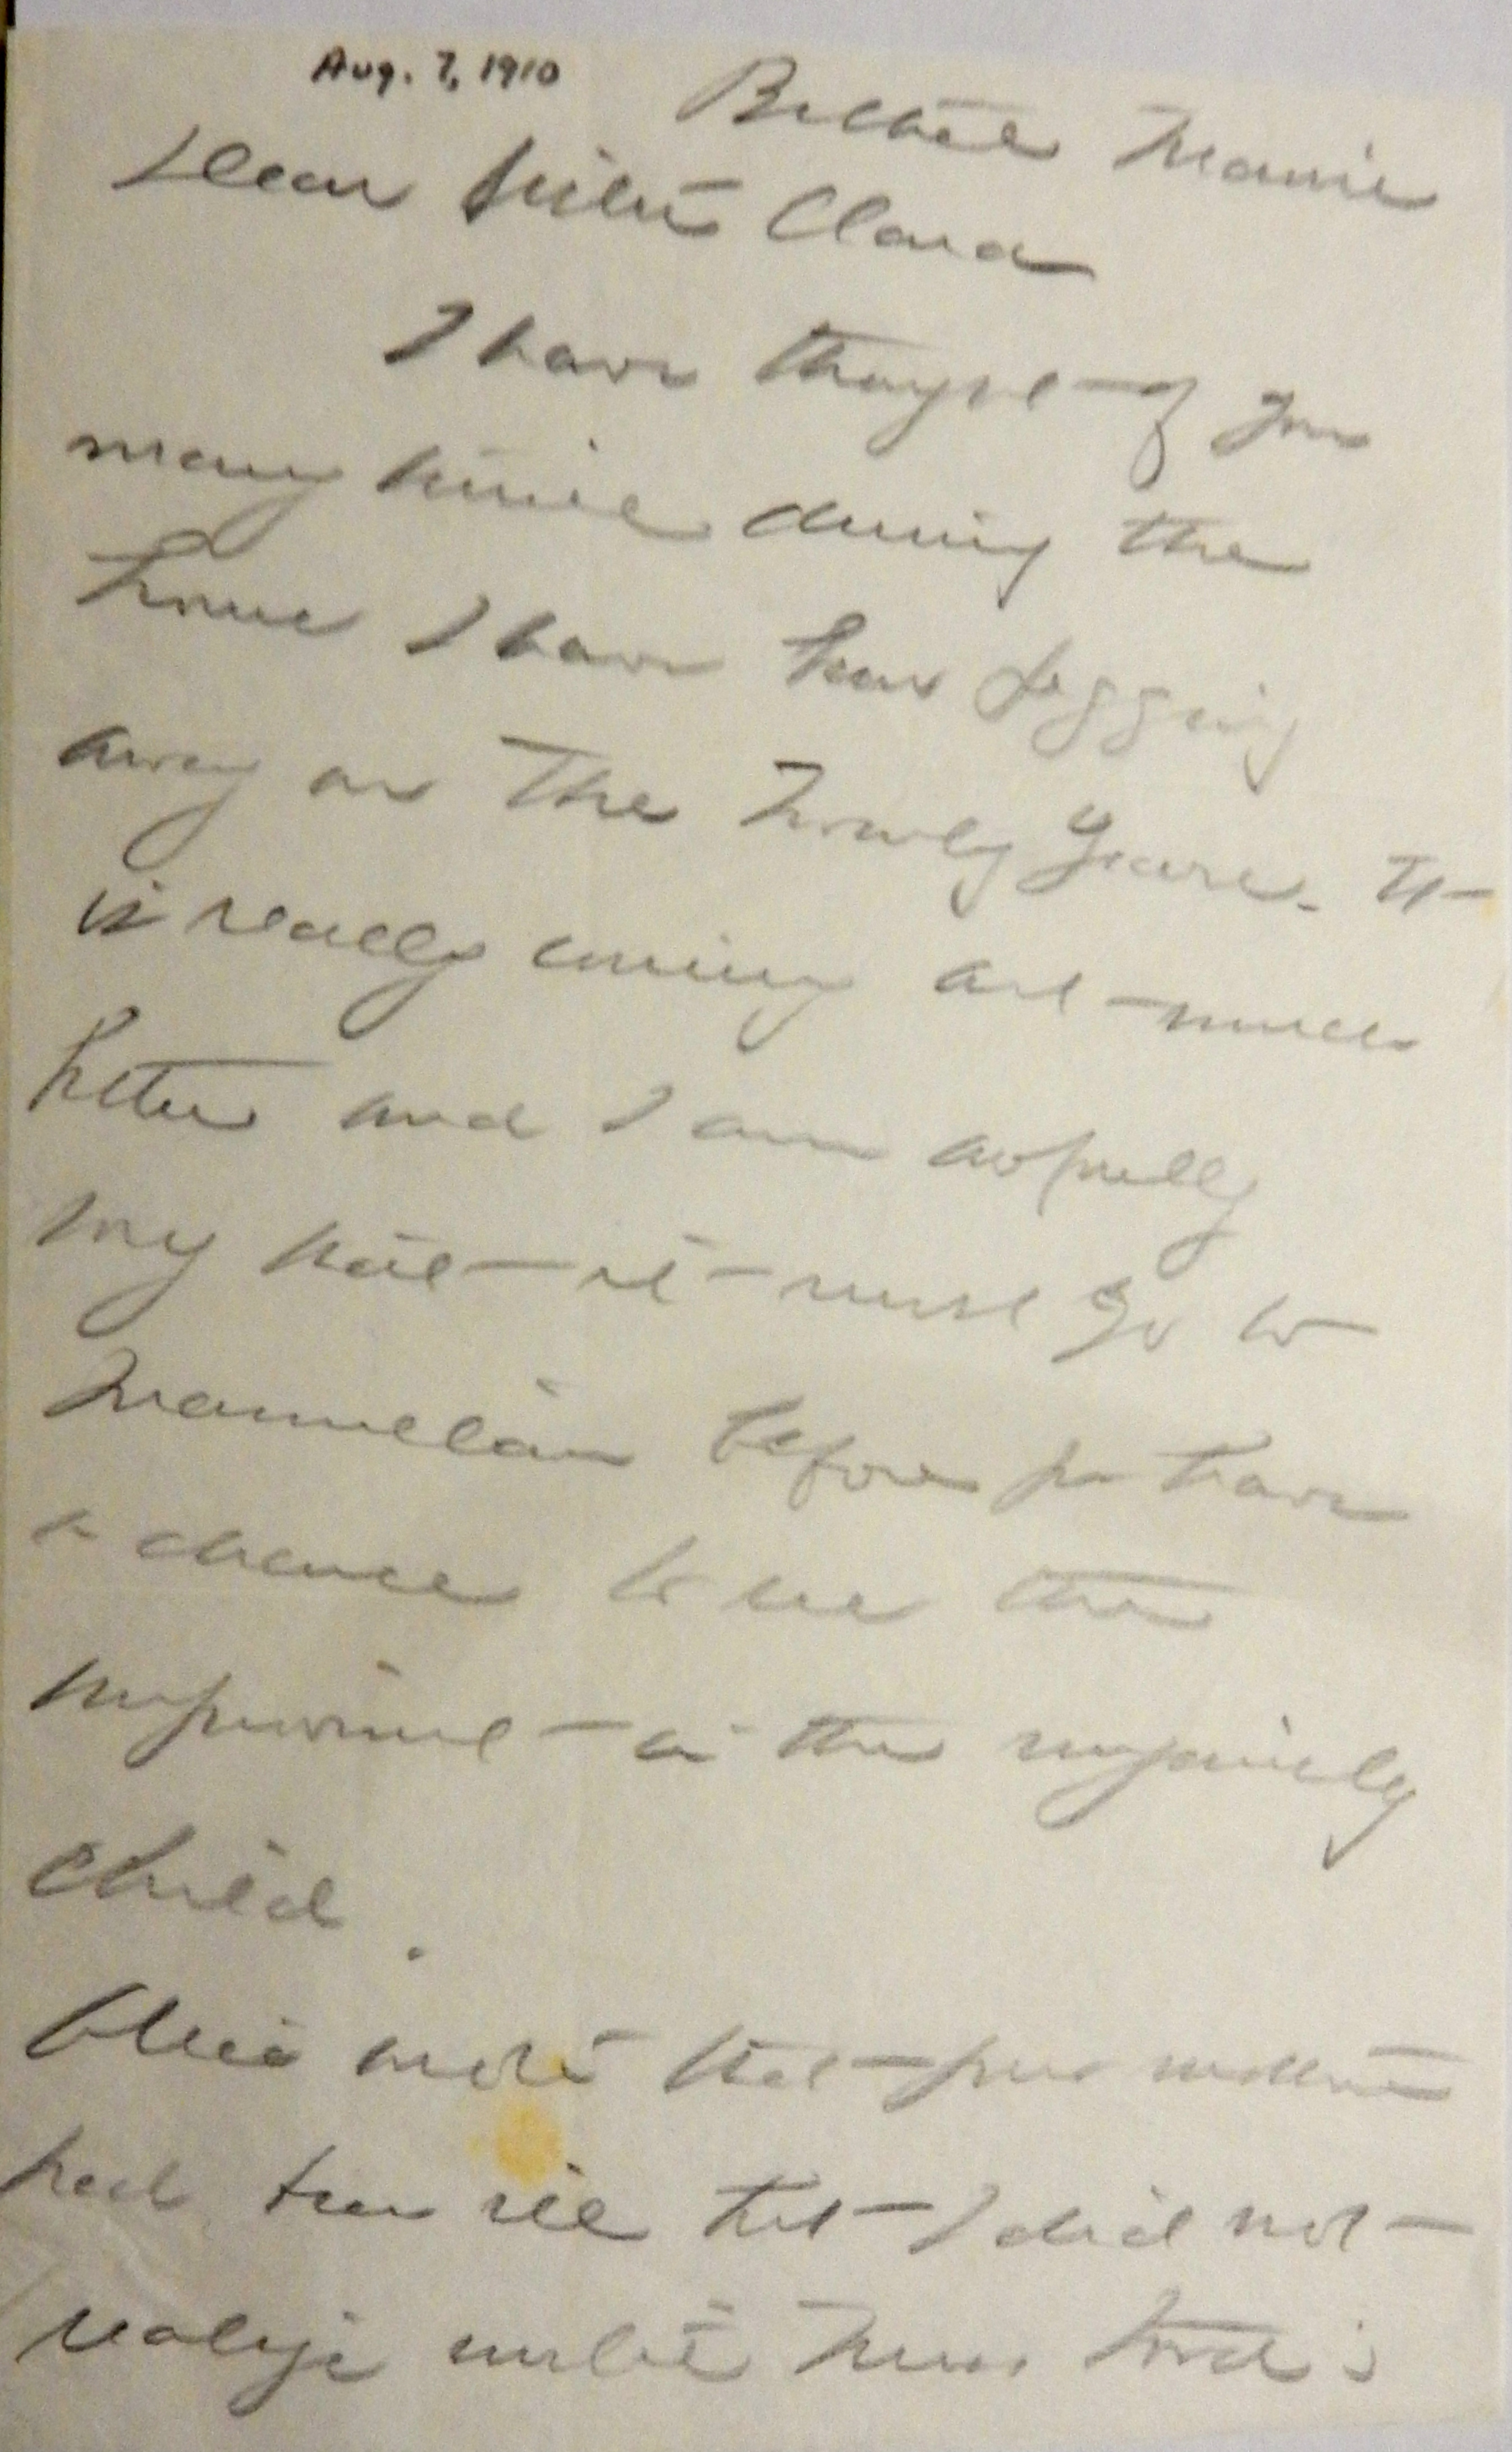 Aug. 7, 1910
Bethel Maine
Dear Sister Clara
I have thought of you
many times during the
hours I have been pegging
away on The Twenty Years. It
is really coming out much
better and I am awfully
sorry that it must go to
Macmillan before you have
a chance to see the
improvement in the
child.
Alice wrote that your mother
had been ill but I did not
realize until Miss